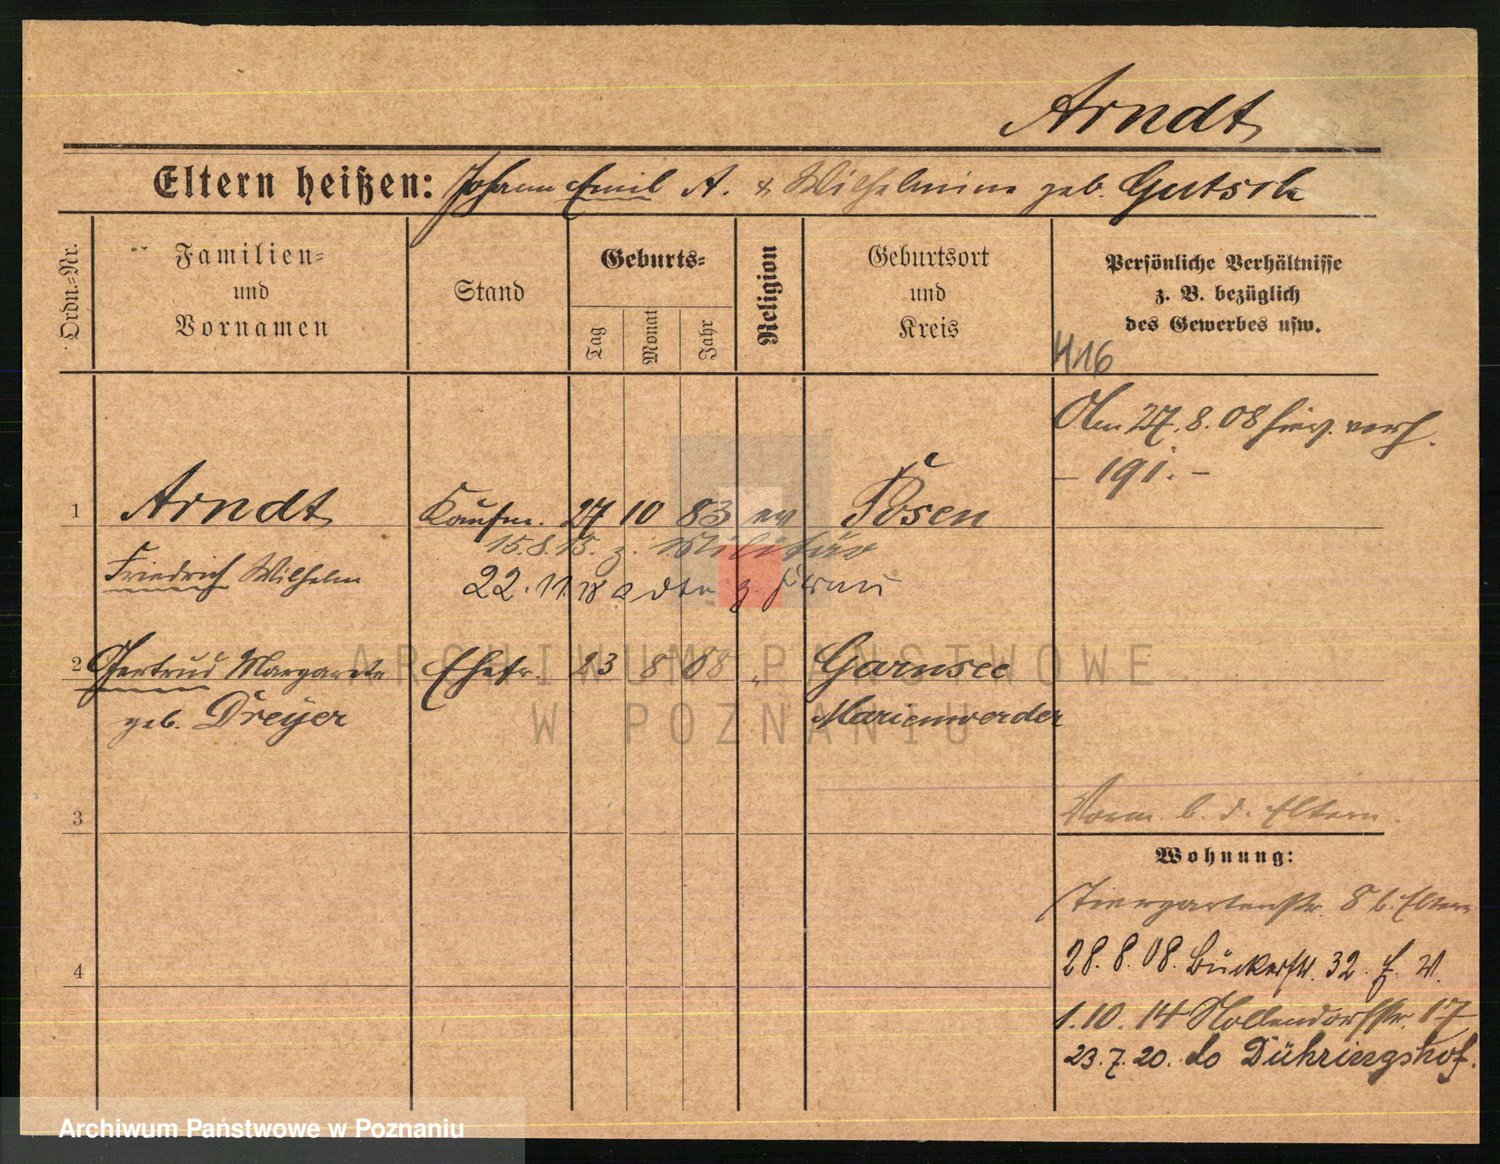 Arndt
Eltern heißen: Johann Emil A. & Wilhelmine geb. Gutsch
Ordn.-Nr.
Familien-
und
Vornamen
Stand
Geburts-
Tag
Monat
Jahr
Religion
Geburtsort
und
Kreis
Persönliche Verhältnisse
z. B. bezüglich
des Gewerbes usw.
416
Am 27.8.08 hier verh.
- 191. -
1 Arndt Kaufm. 27 10 83 ev Posen
15.8.15. z. Militär
Friedrich Wilhelm
22.11.18 z. Frau
2 Gertrud Margarete Ehefr. 23 8 08 " Garnsee
geb. Dreyer Marienwerder
3
Vorm. b. d. Eltern.
Wohnung:
Tiergartenstr. 8 b. Eltern
4
28.8.08. Bukerstr. 32.
1.10.14 Nollendorfstr. 17
23.7.20. do Dühringshof.
ARCHIWUM PAŃSTWOWE
W POZNANIU
Archiwum Państwowe w Poznaniu